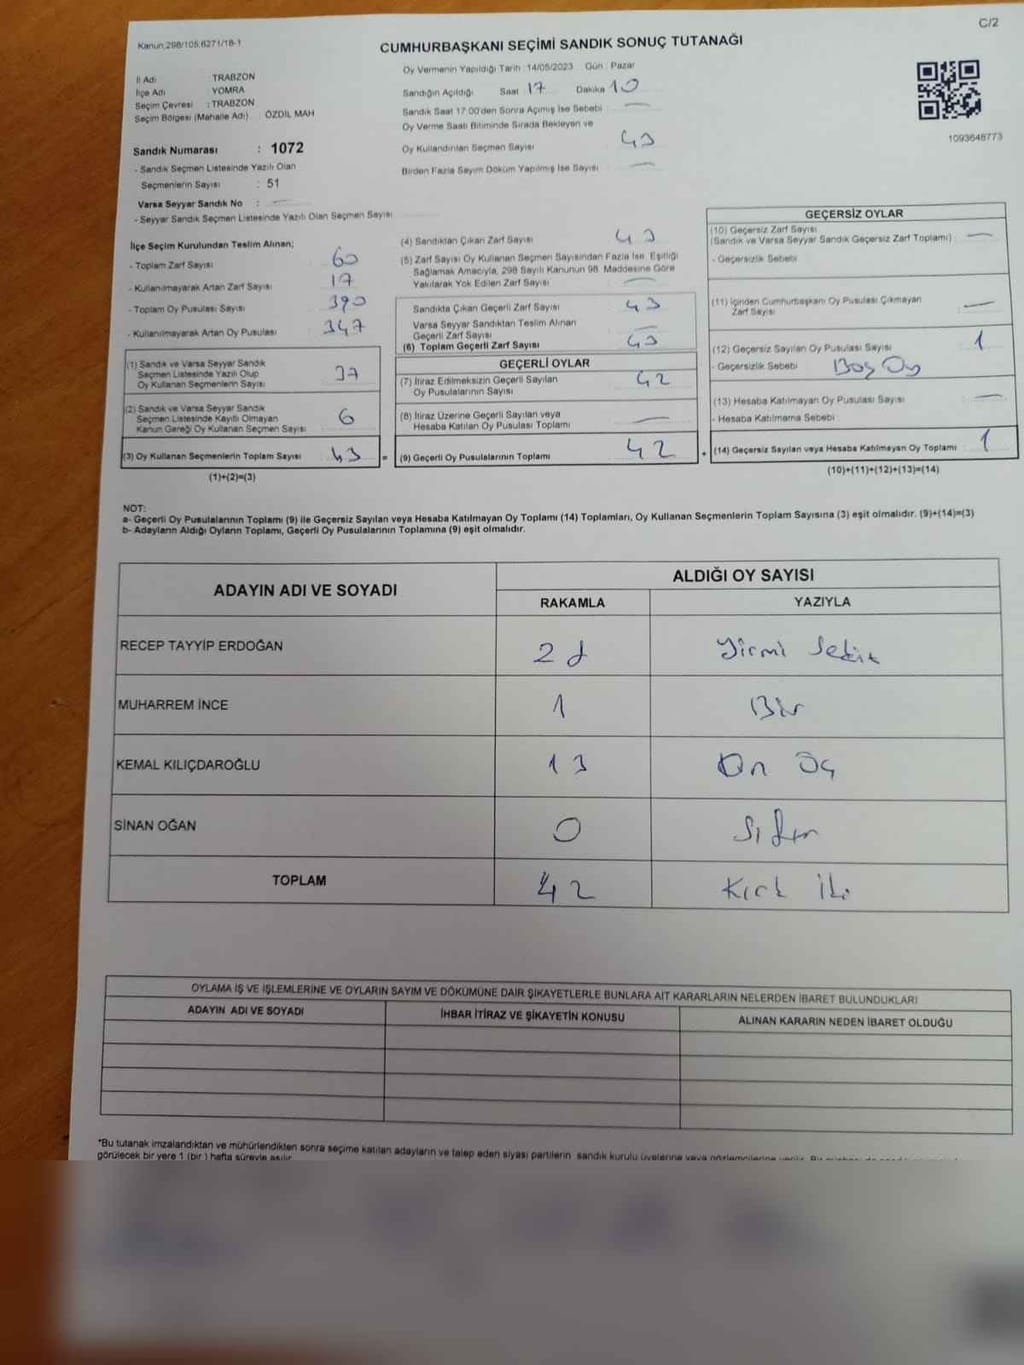 C/2
Kanun,298/105;6271/18-1
CUMHURBAŞKANI SEÇİMİ SANDIK SONUÇ TUTANAĞI
İl Adı TRABZON
İlçe Adı YOMRA
Seçim Çevresi : TRABZON
Seçim Bölgesi (Mahalle Adı) : ÖZDİL MAH
Sandık Numarası : 1072
- Sandık Seçmen Listesinde Yazılı Olan
Seçmenlerin Sayısı : 51
Varsa Seyyar Sandık No :
- Seyyar Sandık Seçmen Listesinde Yazılı Olan Seçmen Sayısı
Oy Vermenin Yapıldığı Tarih : 14/05/2023 Gün : Pazar
Sandığın Açıldığı Saat 17 Dakika 10
Sandık Saat 17:00'den Sonra Açılmış İse Sebebi
Oy Verme Saati Bitiminde Sırada Bekleyen ve
Oy Kullandırılan Seçmen Sayısı 43
Birden Fazla Sayım Döküm Yapılmış İse Sayısı
1093648773
İlçe Seçim Kurulundan Teslim Alınan;
- Toplam Zarf Sayısı 60
- Kullanılmayarak Artan Zarf Sayısı 17
- Toplam Oy Pusulası Sayısı 390
- Kullanılmayarak Artan Oy Pusulası 347
(1) Sandık ve Varsa Seyyar Sandık
Seçmen Listesinde Yazılı Olup
Oy Kullanan Seçmenlerin Sayısı 37
(2) Sandık ve Varsa Seyyar Sandık
Seçmen Listesinde Kayıtlı Olmayan
Kanun Gereği Oy Kullanan Seçmen Sayısı 6
(3) Oy Kullanan Seçmenlerin Toplam Sayısı 43
(1)+(2)=(3)
(4) Sandıktan Çıkan Zarf Sayısı 43
(5) Zarf Sayısı Oy Kullanan Seçmen Sayısından Fazla İse, Eşitliği
Sağlamak Amacıyla, 298 Sayılı Kanunun 98. Maddesine Göre
Yakılarak Yok Edilen Zarf Sayısı
Sandıkta Çıkan Geçerli Zarf Sayısı 43
Varsa Seyyar Sandıktan Teslim Alınan
Geçerli Zarf Sayısı
(6) Toplam Geçerli Zarf Sayısı 43
GEÇERLİ OYLAR
(7) İtiraz Edilmeksizin Geçerli Sayılan
Oy Pusulalarının Sayısı 42
(8) İtiraz Üzerine Geçerli Sayılan veya
Hesaba Katılan Oy Pusulası Toplamı
= (9) Geçerli Oy Pusulalarının Toplamı 42
GEÇERSİZ OYLAR
(10) Geçersiz Zarf Sayısı
(Sandık ve Varsa Seyyar Sandık Geçersiz Zarf Toplamı)
- Geçersizlik Sebebi
(11) İçinden Cumhurbaşkanı Oy Pusulası Çıkmayan
Zarf Sayısı
(12) Geçersiz Sayılan Oy Pusulası Sayısı 1
- Geçersizlik Sebebi Boş Oy
(13) Hesaba Katılmayan Oy Pusulası Sayısı
- Hesaba Katılmama Sebebi
+ (14) Geçersiz Sayılan veya Hesaba Katılmayan Oy Toplamı 1
(10)+(11)+(12)+(13)=(14)
NOT:
a- Geçerli Oy Pusulalarının Toplamı (9) ile Geçersiz Sayılan veya Hesaba Katılmayan Oy Toplamı (14) Toplamları, Oy Kullanan Seçmenlerin Toplam Sayısına (3) eşit olmalıdır. (9)+(14)=(3)
b- Adayların Aldığı Oyların Toplamı, Geçerli Oy Pusulalarının Toplamına (9) eşit olmalıdır.
ADAYIN ADI VE SOYADI
ALDIĞI OY SAYISI
RAKAMLA YAZIYLA
RECEP TAYYİP ERDOĞAN 28 Yirmi Sekiz
MUHARREM İNCE 1 Bir
KEMAL KILIÇDAROĞLU 13 On Üç
SİNAN OĞAN 0 Sıfır
TOPLAM 42 Kırk İki
OYLAMA İŞ VE İŞLEMLERİNE VE OYLARIN SAYIM VE DÖKÜMÜNE DAİR ŞİKAYETLERLE BUNLARA AİT KARARLARIN NELERDEN İBARET BULUNDUKLARI
ADAYIN ADI VE SOYADI İHBAR İTİRAZ VE ŞİKAYETİN KONUSU ALINAN KARARIN NEDEN İBARET OLDUĞU
*Bu tutanak imzalandıktan ve mühürlendikten sonra seçime katılan adayların ve talep eden siyasi partilerin sandık kurulu üyelerine veya gözlemcilerine verilir.
görülecek bir yere 1 (bir) hafta süreyle asılır.